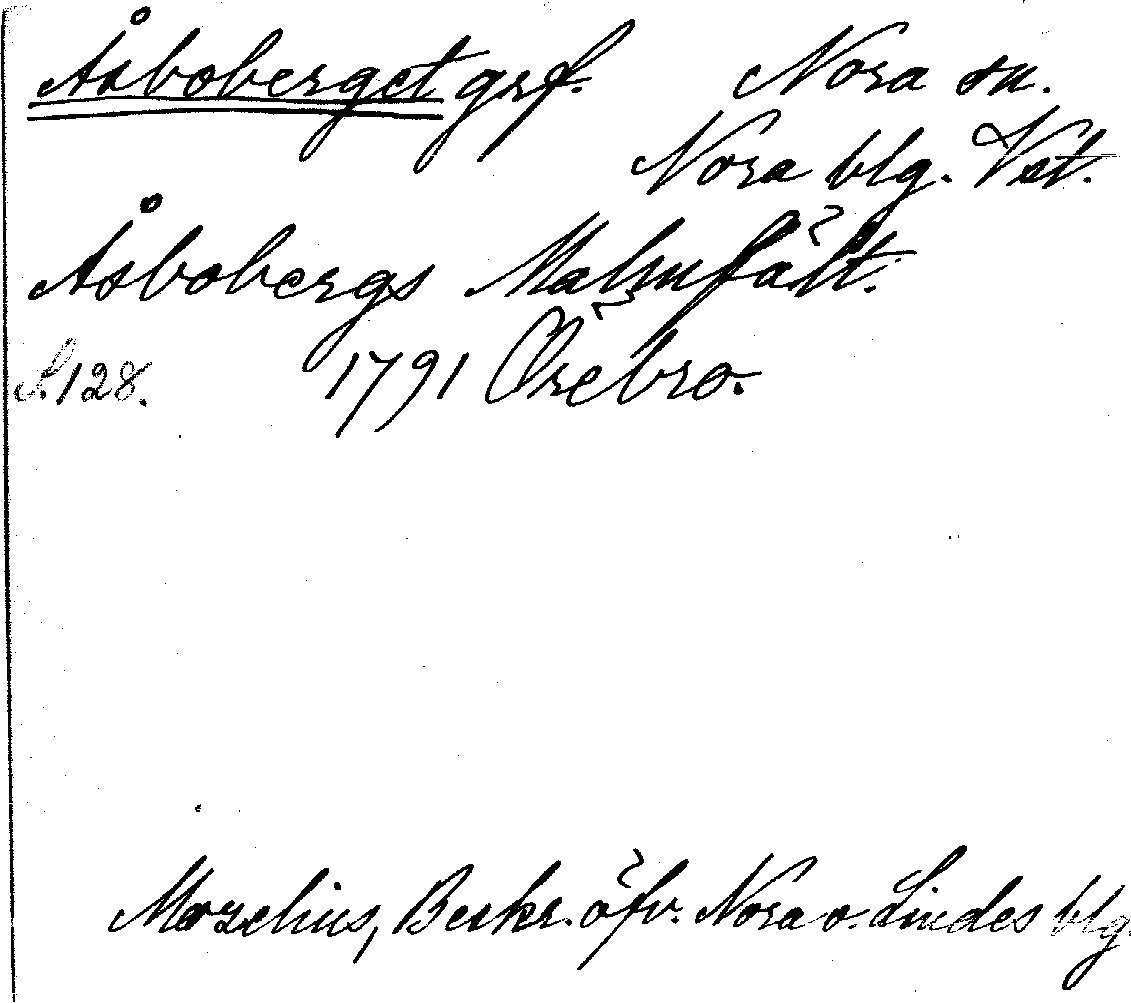 Åsboberget grf. Nora sn.
Nora blg. Vst.
Åsbobergs Malmfält.
S. 128. 1791 Örebro.
Morelius, Beskr. öfv. Nora o. Lindes blg.